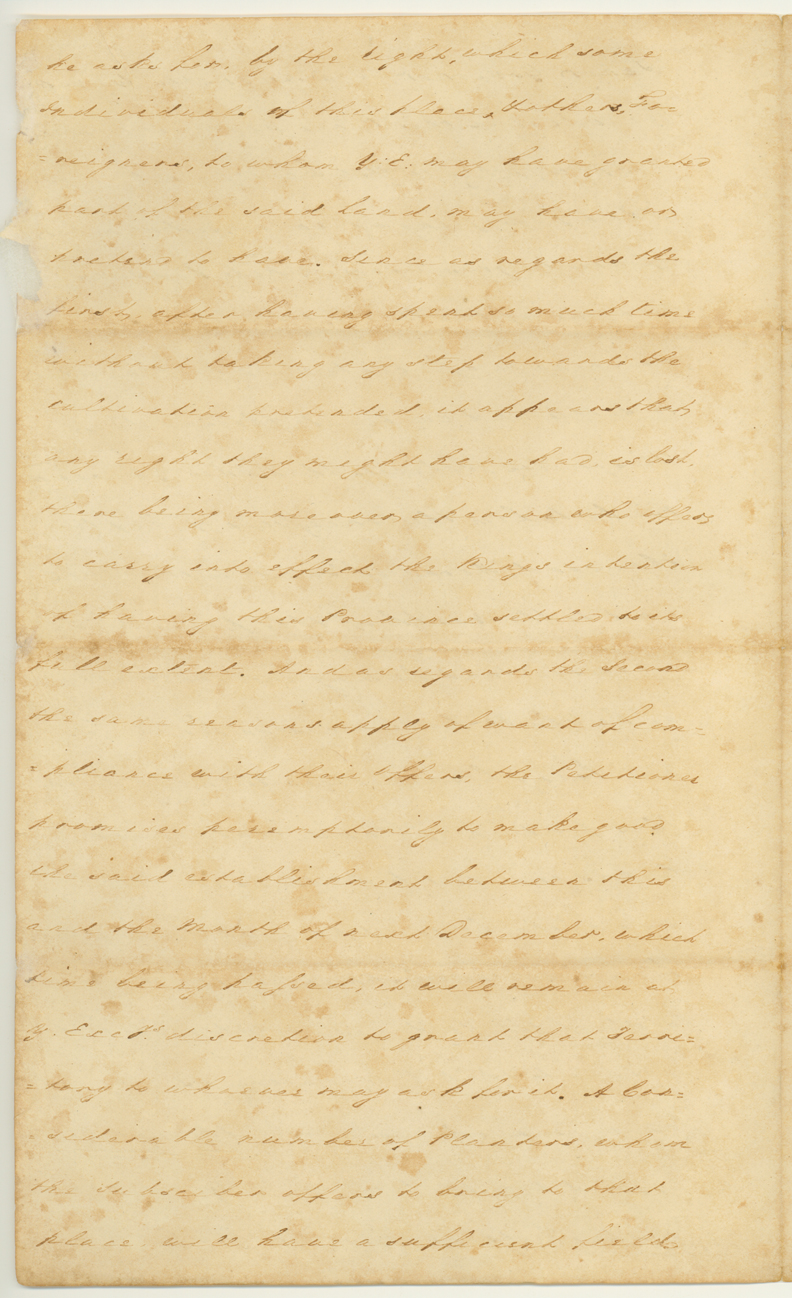 he asks for, by the right, which some
Individuals of this place, & others, Fo=
=reigners, to whom Y. E. may have granted
part of the said land, may have or
pretend to have. Since as regards the
first, after having spent so much time
without taking any step towards the
cultivation pretended, it appears that
any right they might have had, is lost,
there being moreover, a person who offers
to carry into effect the King's intention
of having this Province settled to its
full extent. And as regards the Second
the same reasons apply of want of com=
=pliance with their offers, the Petitioner
promises peremptorily to make good
the said establishment between this
and the Month of next December, which
time being passed, it will remain at
Y. Excy's. discretion to grant that Terri=
=tory to whoever may ask for it. A Con=
siderable number of Planters, whom
the subscriber offers to bring to that
place, will have a sufficient field